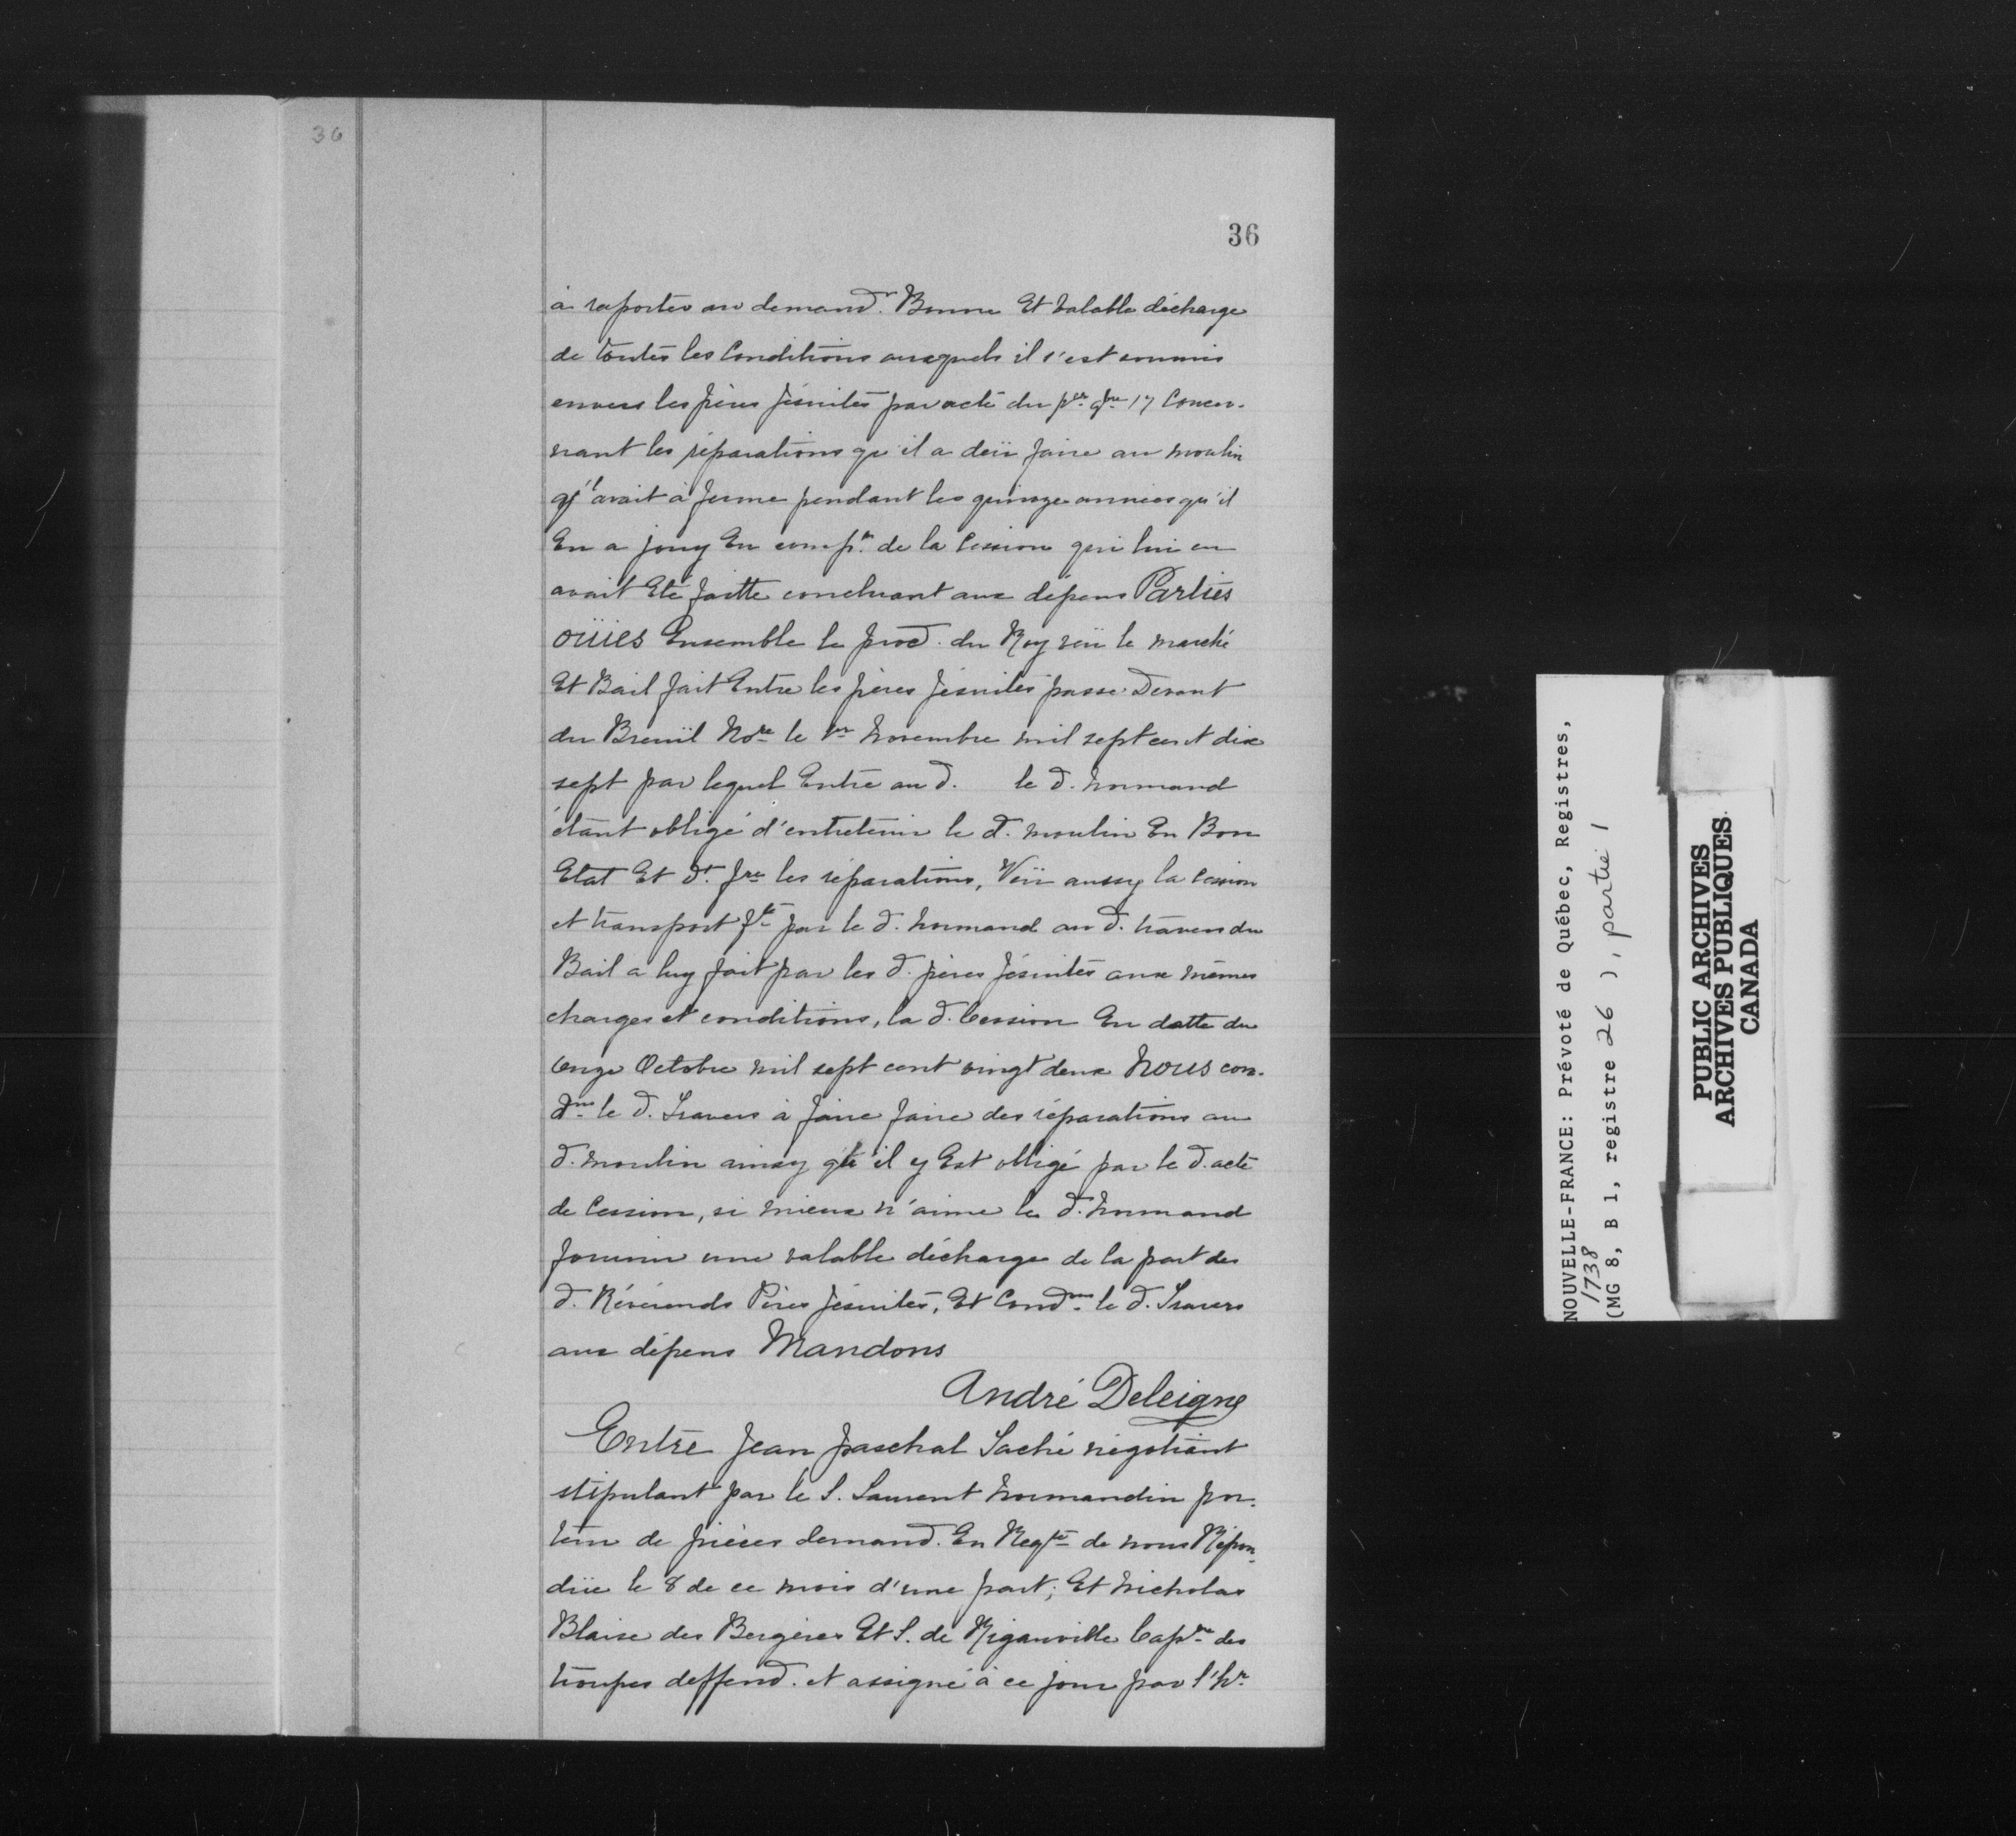 36
36
à raporter au demand.r Bonne Et valable décharge
de toutes les Conditions auxquels il s'est soumis
envers les pères Jésuites par acte du p.er 9bre 17 Concer-
nant les réparations qu'il a deü faire au moulin
q'l avait à ferme pendant les quinze années qu'il
En a jouy En conséq.ce de la Cession qui lui en
avait Eté faitte concluant aux dépens Parties
ouïies Ensemble le proc. du Roy veü le marché
Et Bail fait Entre les pères Jésuites passé Devant
du Breuïl No.re le 1er Novembre mil sept cent dix
sept par lequel Entre au d. le d. Normand
étant obligé d'entretenir le d. moulin En Bon
Etat Et d'y f.re les réparations, Veü aussy la Cession
et transport f.te par le d. Normand au d. travers du
Bail a luy fait par les d. pères Jésuites aux mêmes
charges et conditions, la d. Cession En datte du
onze Octobre mil sept cent vingt deux Nous con-
d.ns le d. Travers à faire faire des réparations au
d. moulin ainsy qu'il y Est obligé par le d. acte
de Cession, si mieux n'aime le d. Normand
fournir une valable décharge de la part des
d. Révérends Pères Jésuites, Et Cond.ns le d. Travers
aux dépens Mandons
André Deleigne
Entre Jean paschal Taché négotiant
stipulant par le S. Laurent Normandin por-
teur de pièces demand. En Req.te de nous Répon-
düe le 8 de ce mois d'une part; Et Nicholas
Blaise des Bergères Et S. de Rigauville Cap.ne des
troupes deffend. et assigné à ce jour par l'h.r
NOUVELLE-FRANCE: Prévoté de Québec, Registres,
1738
(MG 8, B 1, registre 26 ), partie 1
PUBLIC ARCHIVES
ARCHIVES PUBLIQUES
CANADA